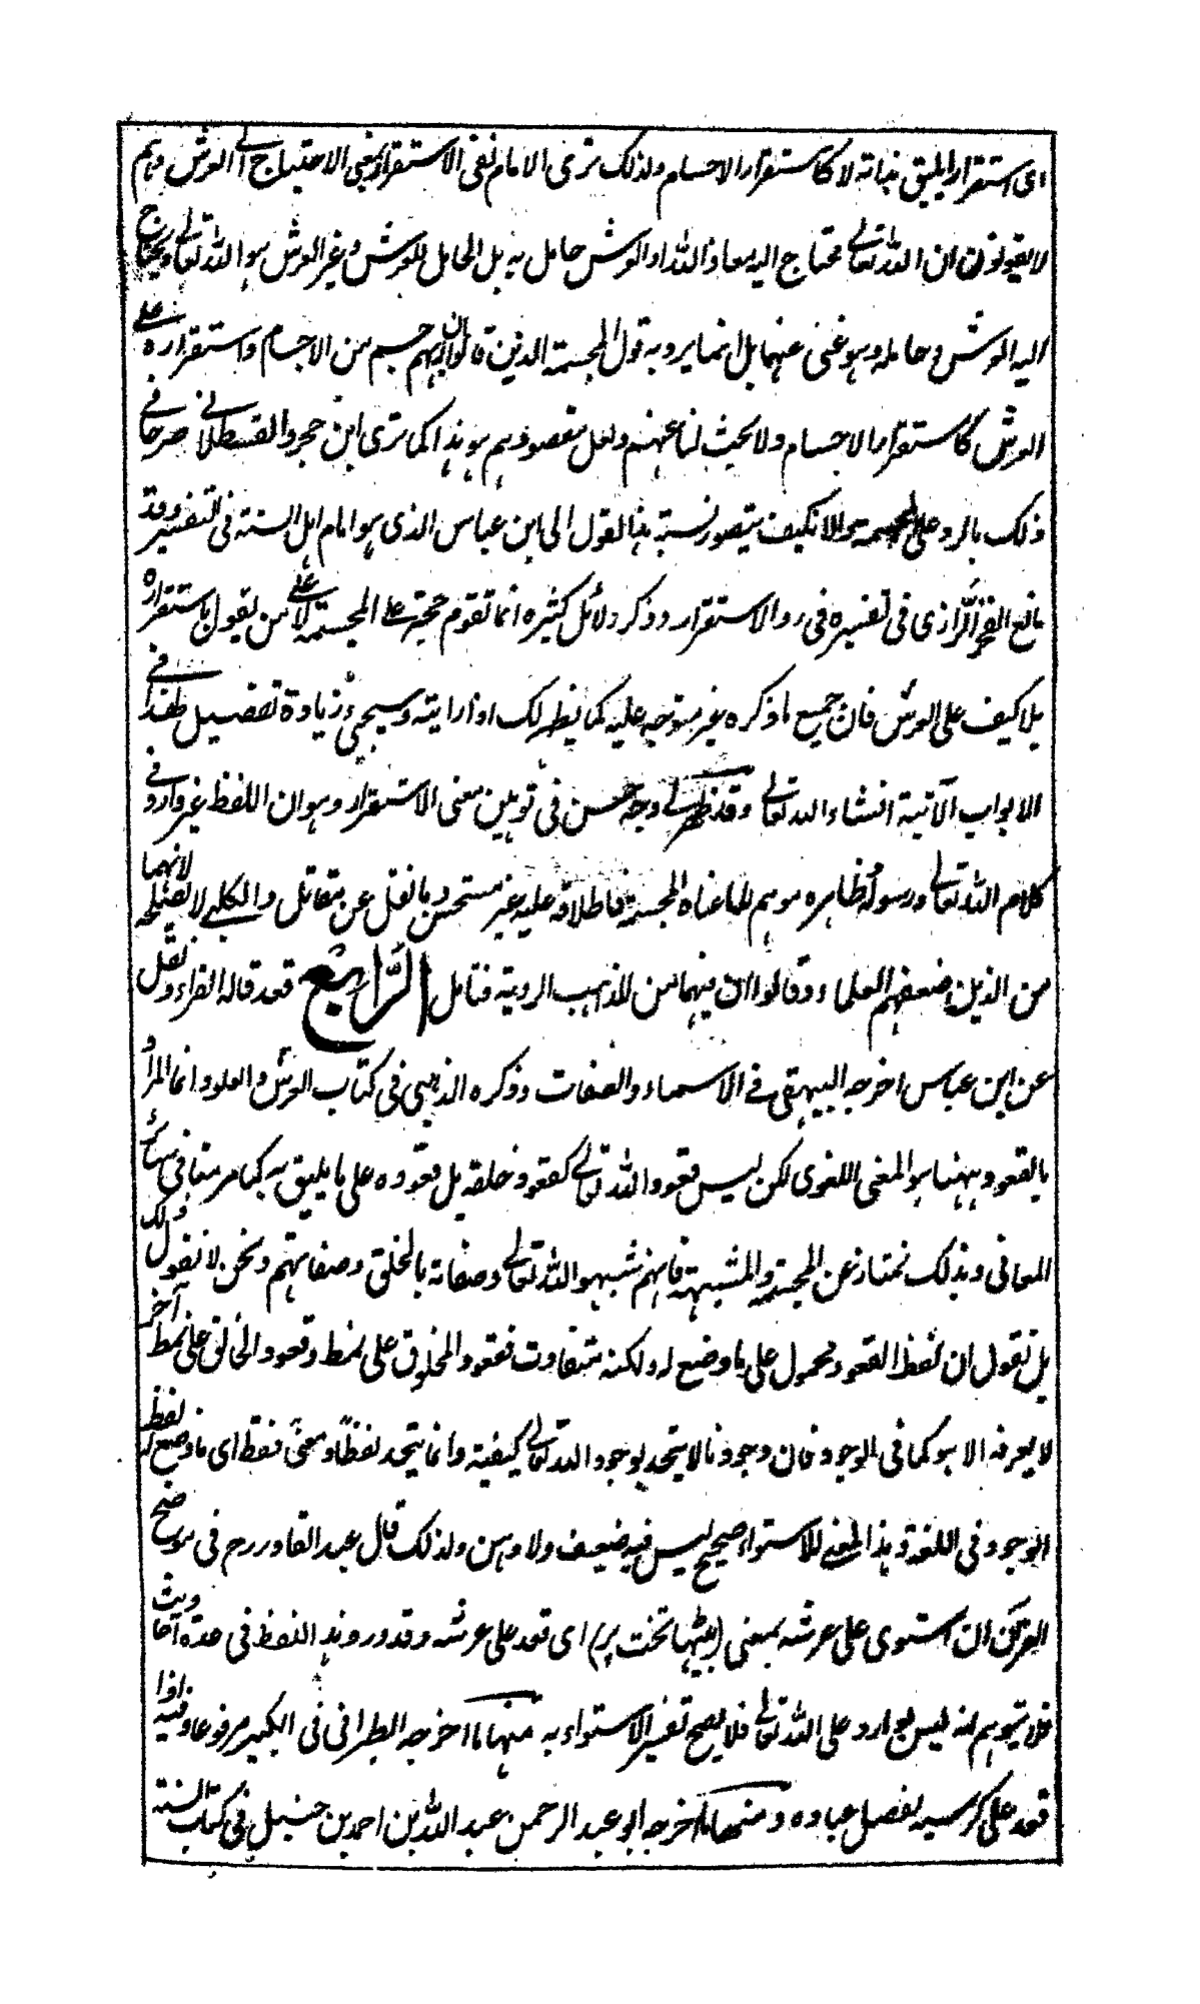 اى استقرار يليق بذاته لا كاستقرار الاجسام ولذلك ترى الامام نفى الاستقرار بمعنى الاحتياج الى العرش وهم
لا يقولون ان الله تعالى محتاج اليه معاذ الله او العرش حامل به بل الحامل للعرش وغير العرش هو الله تعالى ويحتاج
اليه العرش وحامله وهو غنى عنها بل انما يرد به قول المجسمة الذين قالوا انه جسم من الاجسام واستقراره على
العرش كاستقرار الاجسام ولا بحث لنا عنهم ولعل مقصودهم هو هذا كما ترى ابن حجر والقسطلانى صرحا فى
ذلك بالرد على المجسمة والا فكيف يتصور نسبة هذا القول الى ابن عباس الذى هو امام اهل السنة فى التفسير وقد
بالغ الفخر الرازى فى تفسيره فى رد الاستقرار وذكر دلائل كثيره انما تقوم حجة على المجسمة لا على من يقول باستقراره
بلا كيف على العرش فان جميع ما ذكره غير متوجه عليه كما يظهر لك اذا رايته وسيجئ زيادة تفصيل لهذا فى
الابواب الآتية انشاء الله تعالى وقد ظهر لى وجه حسن فى توهين معنى الاستقرار وهو ان اللفظ غير وارد فى
كلام الله تعالى ورسوله وظاهره موهم لما عناه المجسمة فاطلاقه عليه غير مستحسن وما نقل عن مقاتل والكلبى لا نقبله لانهما
من الذين ضعفهم العلماء وقالوا ان فيهما من المذاهب الردية فتامل الرَّابِعُ قعد قاله الفراء ونقل
عن ابن عباس اخرجه البيهقى فى الاسماء والصفات وذكره الذهبى فى كتاب العرش والعلو وانما المراد
بالقعود ههنا هو المعنى اللغوى لكن ليس قعود الله تعالى كقعود خلقه بل قعوده على ما يليق به كما مر منا فى سائر
المعانى وبذلك نمتاز عن المجسمة والمشبهة فانهم شبهوا الله تعالى وصفاته بالخلق وصفاتهم ونحن لا نقول ذلك
بل نقول ان لفظ القعود محمول على ما وضع له ولكنه متفاوت فقعود المخلوق على نمط وقعود الخالق على نمط آخر
لا يعرفه الا هو كما فى الوجود فان وجودنا لا يتحد بوجود الله تعالى كيفية وانما يتحد لفظاً ومعنىً فقط اى ما وضع له لفظ
الوجود فى اللغة وهذا المعنى للاستواء صحيح ليس فيه ضعيف ولا وهن ولذلك قال عبد القادر رح فى موضح
القرآن ان استوى على عرشه بمعنى (بيٹها تخت پر) اى قعد على عرشه وقد ورد هذا اللفظ فى عدة احاديث
فلا يتوهم انه ليس بوارد على الله تعالى فلا يصح تفسير الاستواء به منها ما اخرجه الطبرانى فى الكبير مرفوعا وفيه اذا
قعد على كرسيه لفصل عباده ومنها ما اخرجه ابو عبد الرحمن عبد الله بن احمد بن حنبل فى كتاب السنة